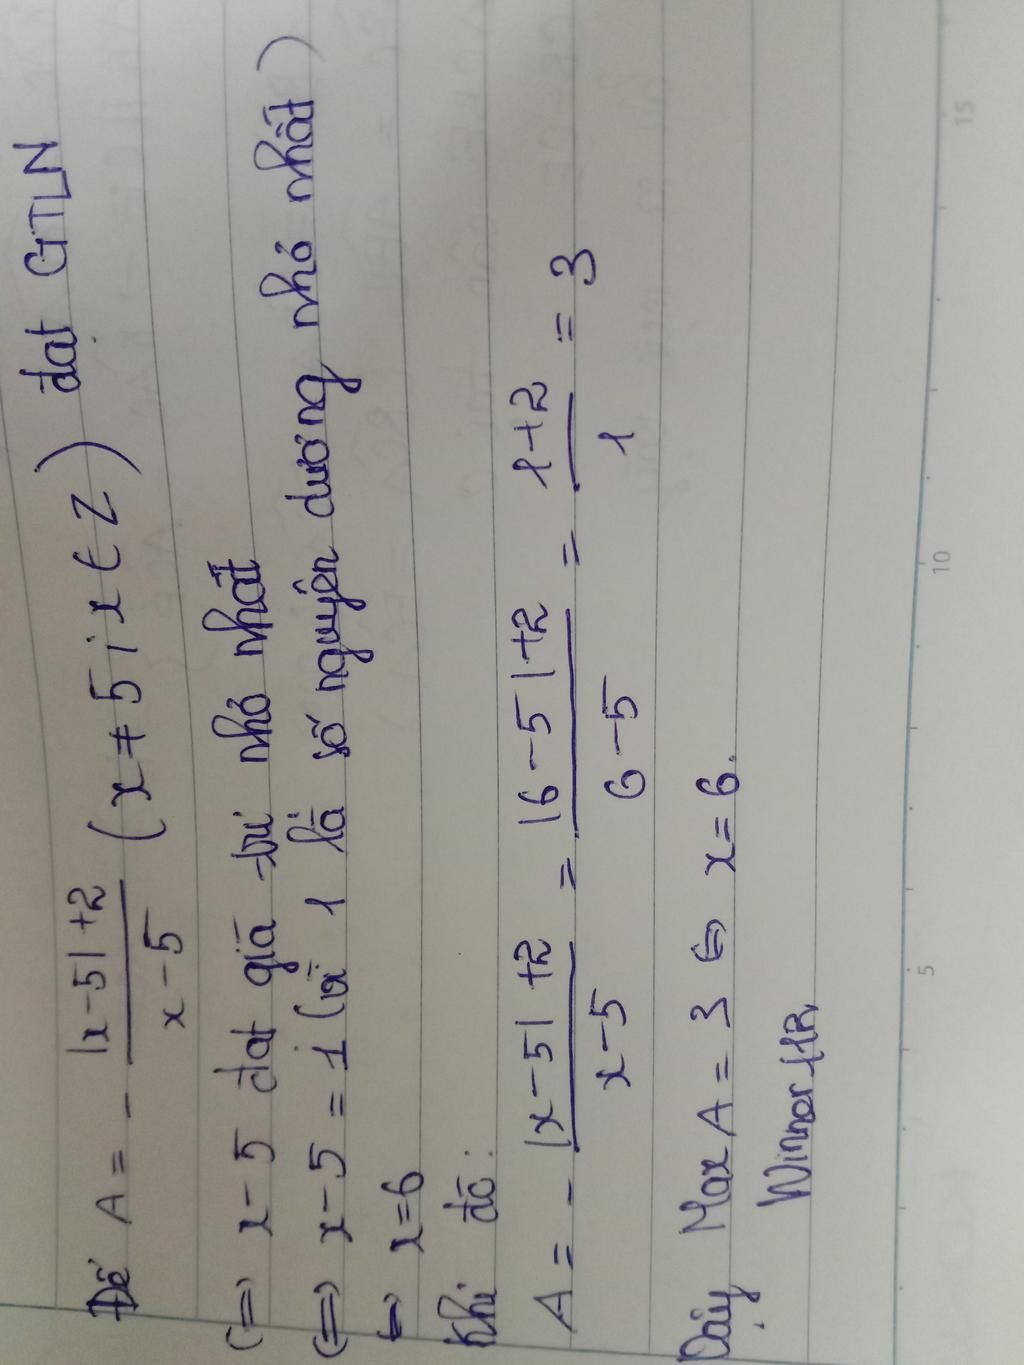 Để A = - |x-5|+2 / x-5 (x ≠ 5; x ∈ Z) đạt GTLN
(=) x-5 đạt giá trị nhỏ nhất
(=) x-5 = 1 (vì 1 là số nguyên dương nhỏ nhất)
(=) x=6
Khi đó:
A = - |x-5|+2 / x-5 = |6-5|+2 / 6-5 = 1+2 / 1 = 3
Vậy Max A = 3 (=) x=6.
Winner
5 10 15